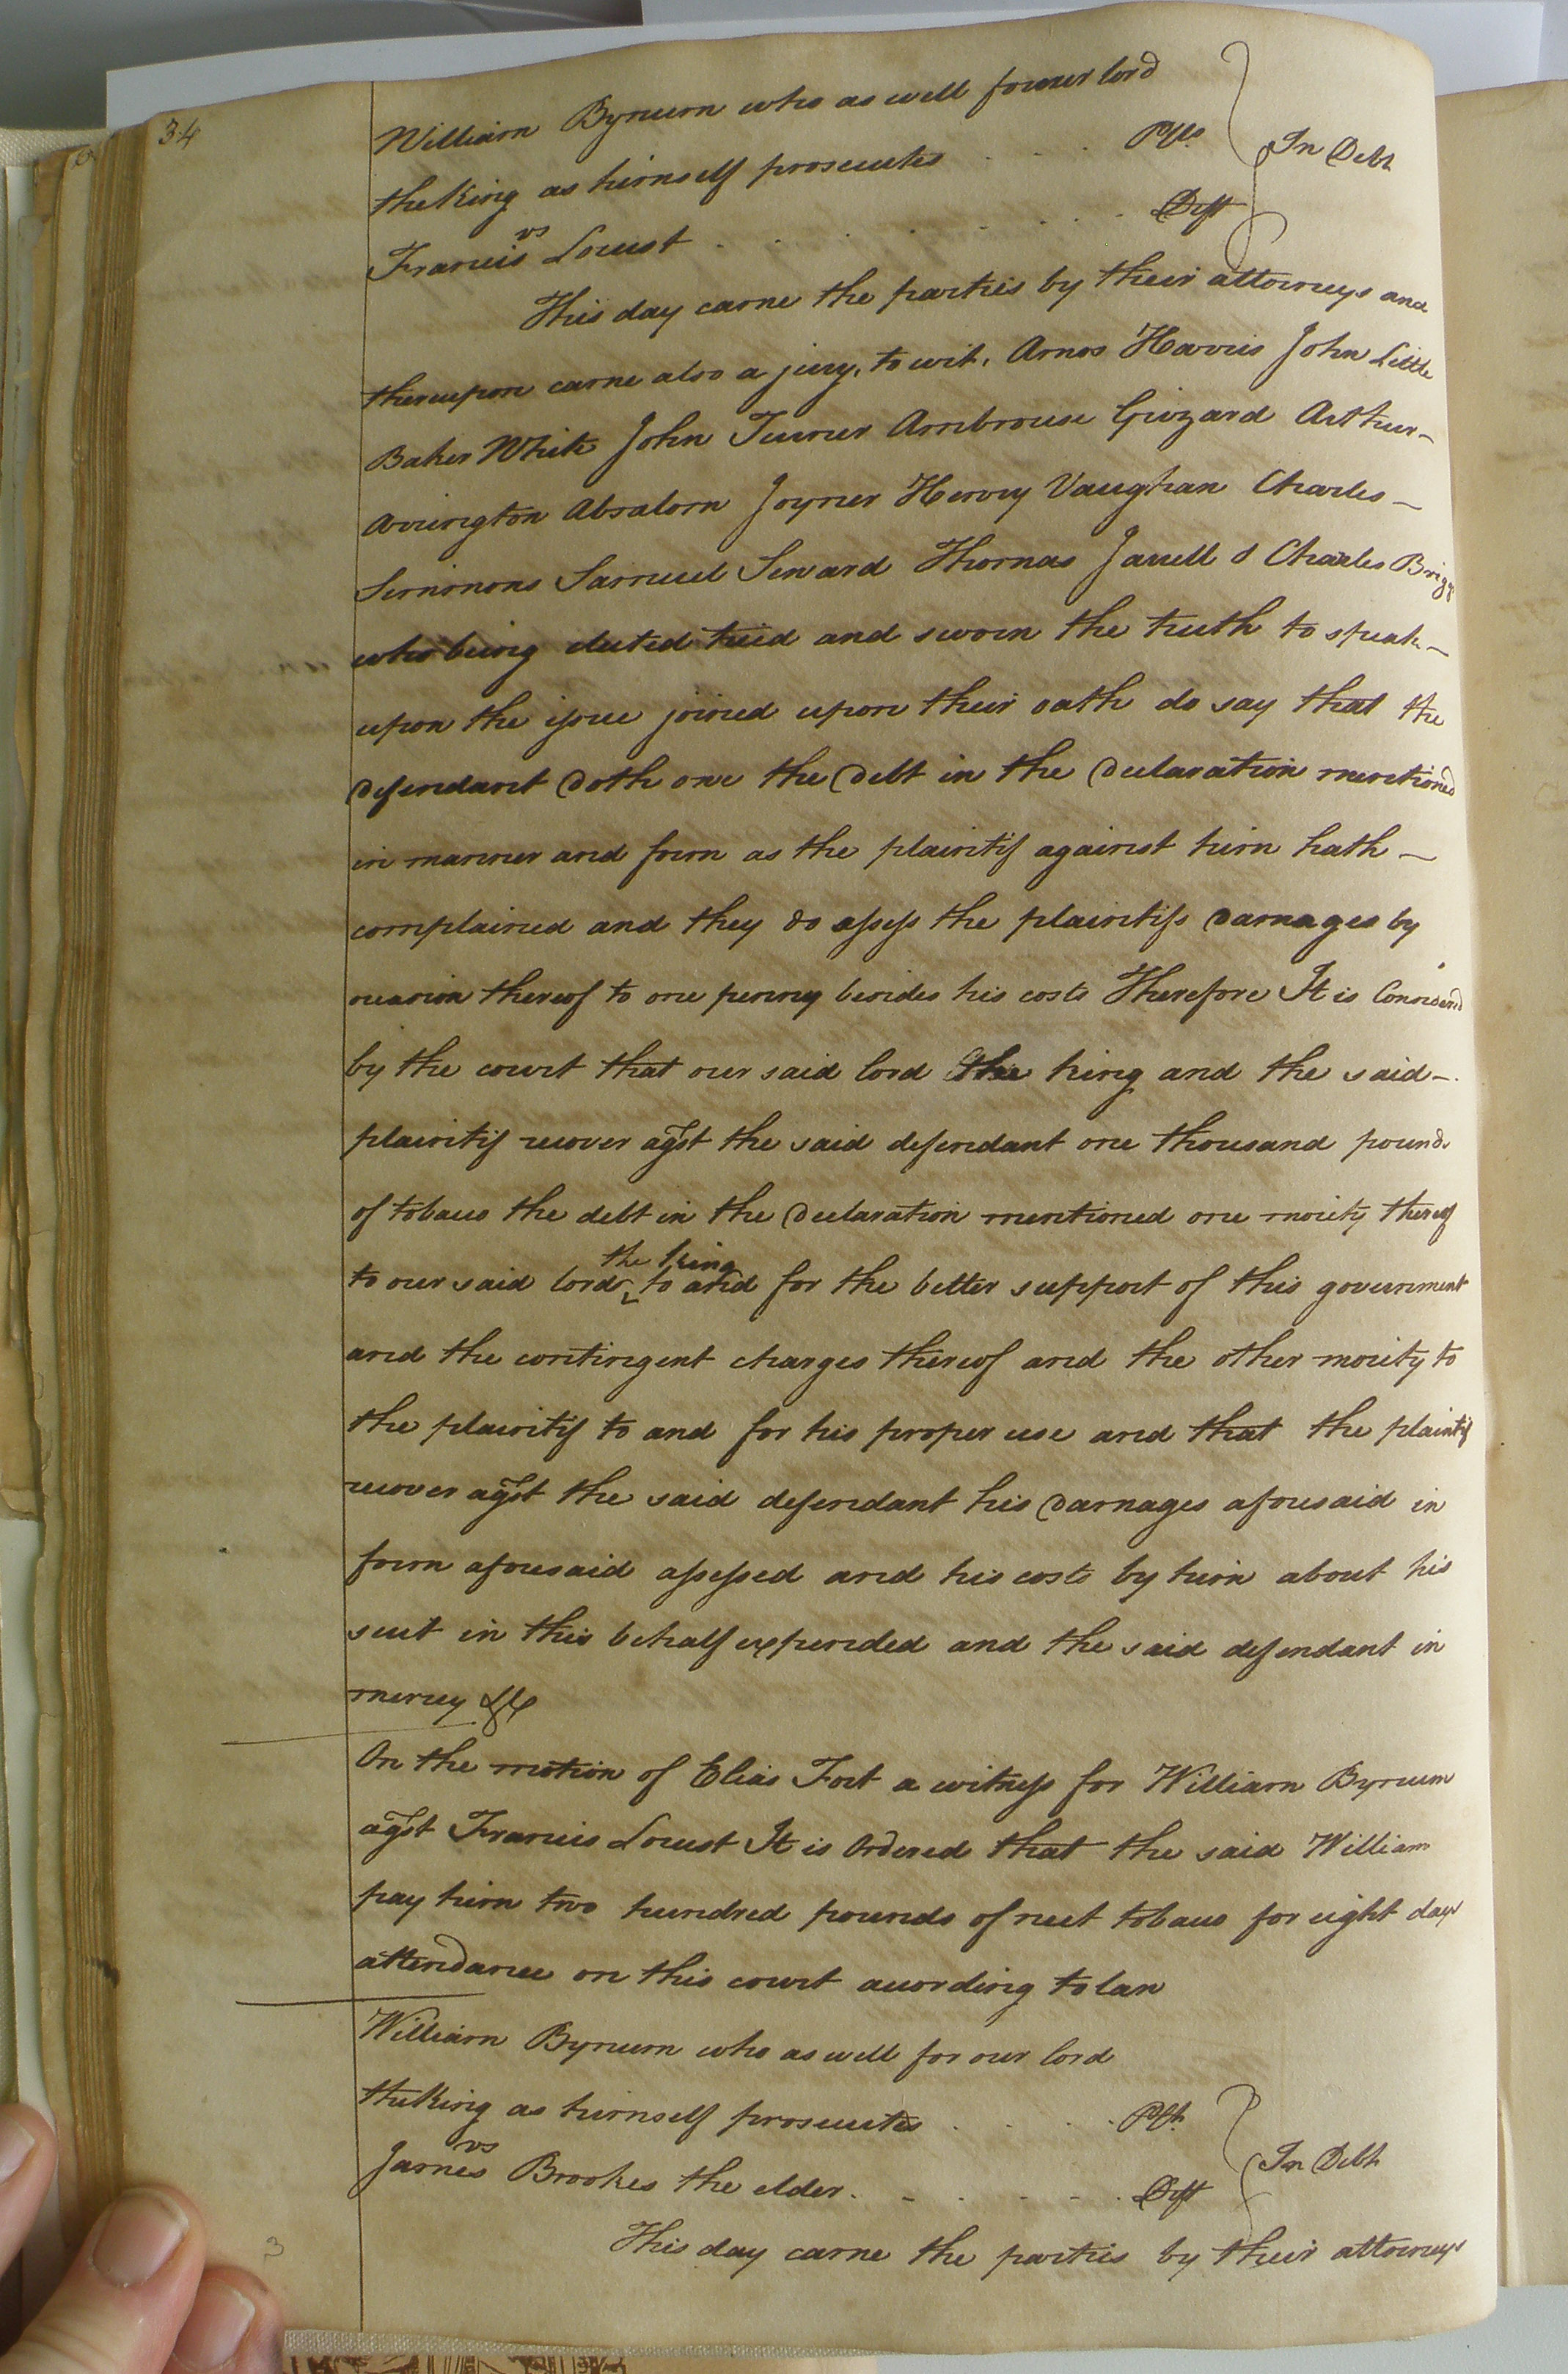 34
William Bynum who as well for our lord
the King as himself prosecutes . . . . Plts
vs
Francis Locust . . . . . . . Deft
In Debt
This day came the parties by their attorneys and
thereupon came also a jury, to wit, Amos Harris John Little
Baker White John Turner Ambrouse Grizard Arthur
Arrington Absalom Joyner Hervey Vaughan Charles
Simmons Samuel Seward Thomas Jarrell & Charles Briggs
who being elected tried and sworn the truth to speak
upon the issue joined upon their oath do say that the
defendant doth owe the debt in the declaration mentioned
in manner and form as the plaintif against him hath
complained and they do assess the plaintifs damages by
reason thereof to one penny besides his costs Therefore It is Considered
by the court that our said lord the king and the said
plaintif recover agst the said defendant one thousand pounds
of tobacco the debt in the declaration mentioned one moiety thereof
to our said lord the King to and for the better support of this government
and the contingent charges thereof and the other moiety to
the plaintif to and for his proper use and that the plaintif
recover agst the said defendant his damages aforesaid in
form aforesaid assessed and his costs by him about his
suit in this behalf expended and the said defendant in
mercy &c
On the motion of Elias Fort a witness for William Bynum
agst Francis Locust It is Ordered that the said William
pay him two hundred pounds of neet tobacco for eight days
attendance on this court according to law
William Bynum who as well for our lord
the King as himself prosecutes . . . . Plt.
vs
James Brookes the elder . . . . . . Deft
In Debt
This day came the parties by their attorneys
3